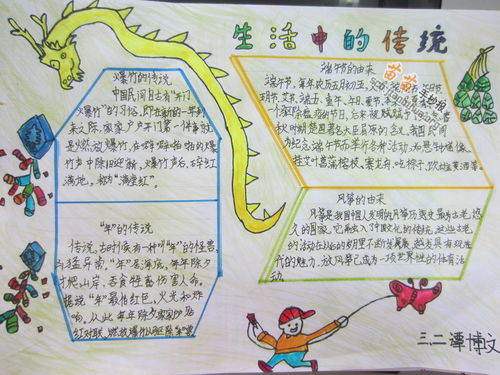 生活中的传统
爆竹的传说
中国民间自古有"开门
爆竹"的习俗,即在新的一年到
来之际,家家户户开门第一件事就
是燃放爆竹,在噼噼啪啪的爆
竹声中除旧迎新。爆竹声后,碎红
满地,称为"满堂红"。
"年"的传说
传说,古时候有一种叫"年"的怪兽,
凶猛异常。"年"居海底,每年除夕
才爬上岸,吞食牲畜伤害人命。
据说"年"最怕红色,火光和炸
响,从此每年除夕家家贴
红对联、燃放爆竹以驱除"年"兽
端午节的由来
端午节,每年农历五月初五,又
春秋时期楚国著名大臣屈原的忌日,我国民间
为纪念端午节而举行各种活动,如悬钟馗像、
挂艾叶菖蒲榕枝、赛龙舟、吃粽子、饮雄黄酒等。
苗苗
手抄报
风筝的由来
风筝是我国人发明的,风筝历史最为古老、悠
久的国家,它融入了中国文化的传统,这些古老
的活动在以后的朝里不断发展着,越发具有现
代的魅力,放风筝已成为一项世界性的体育活
动。
三、二 谭博文